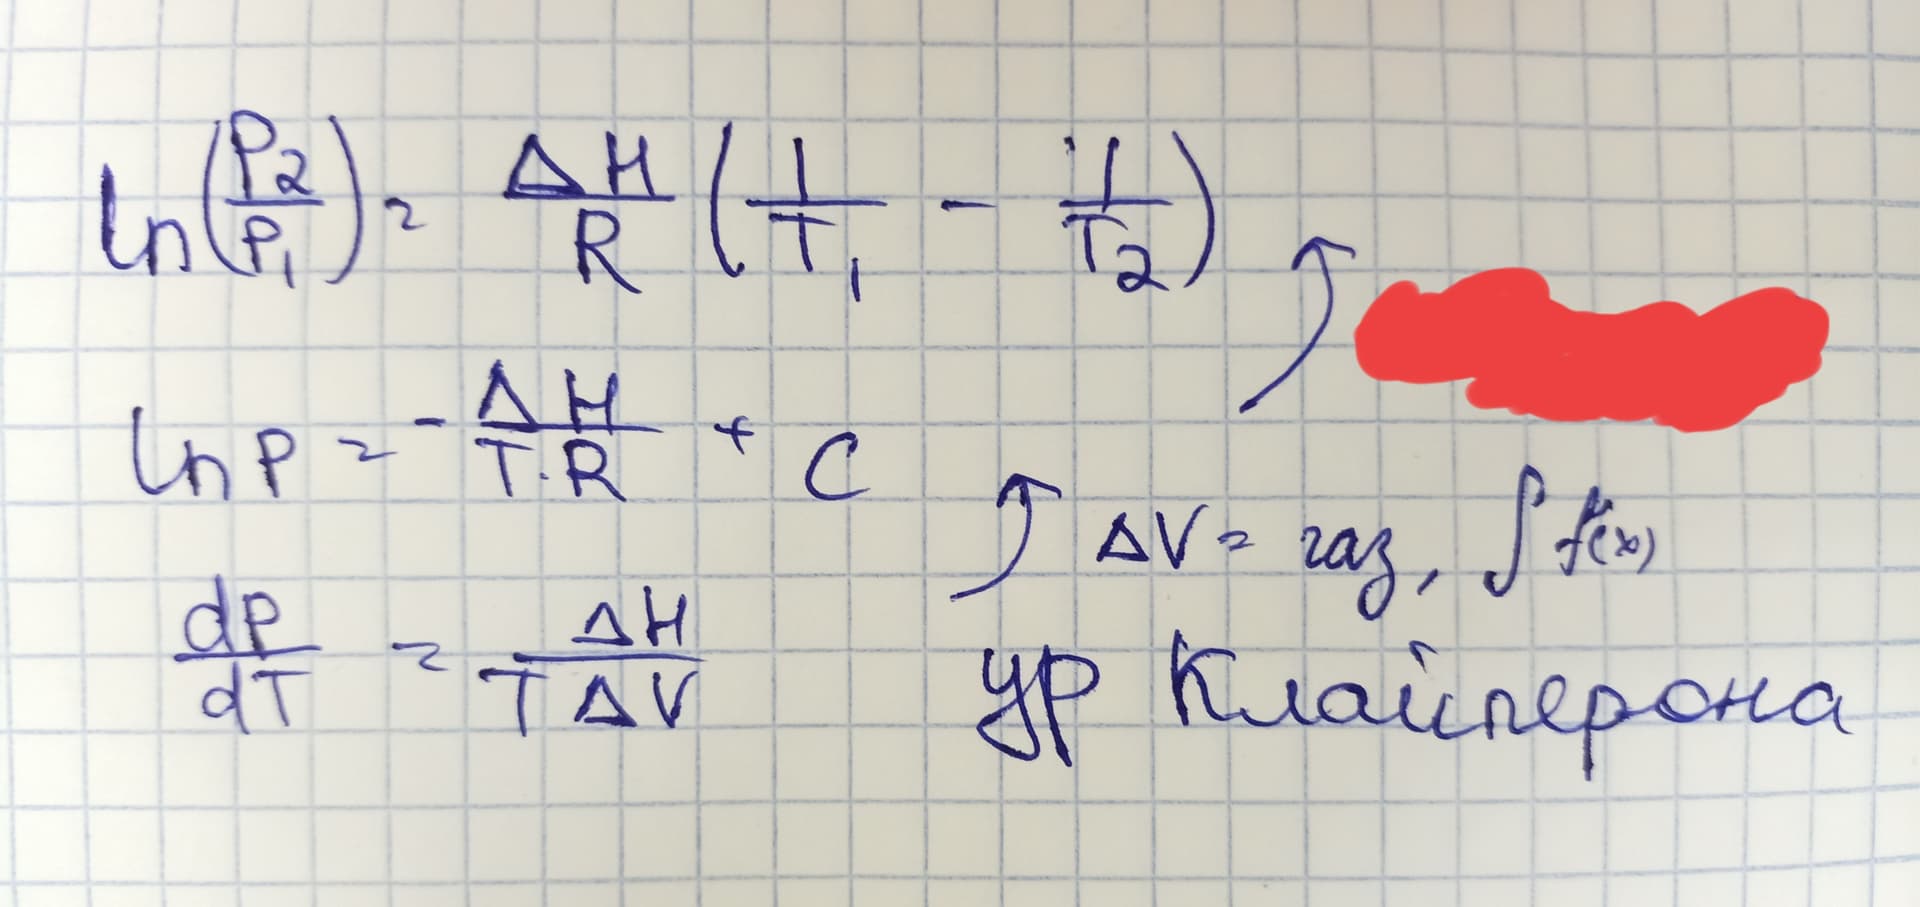 ln(P2/P1) = ΔH/R (1/T1 - 1/T2)
ln P = - ΔH/T·R + C
ΔV = газ, ∫ f(x)
dP/dT = ΔH/TΔV
ур Клайперона